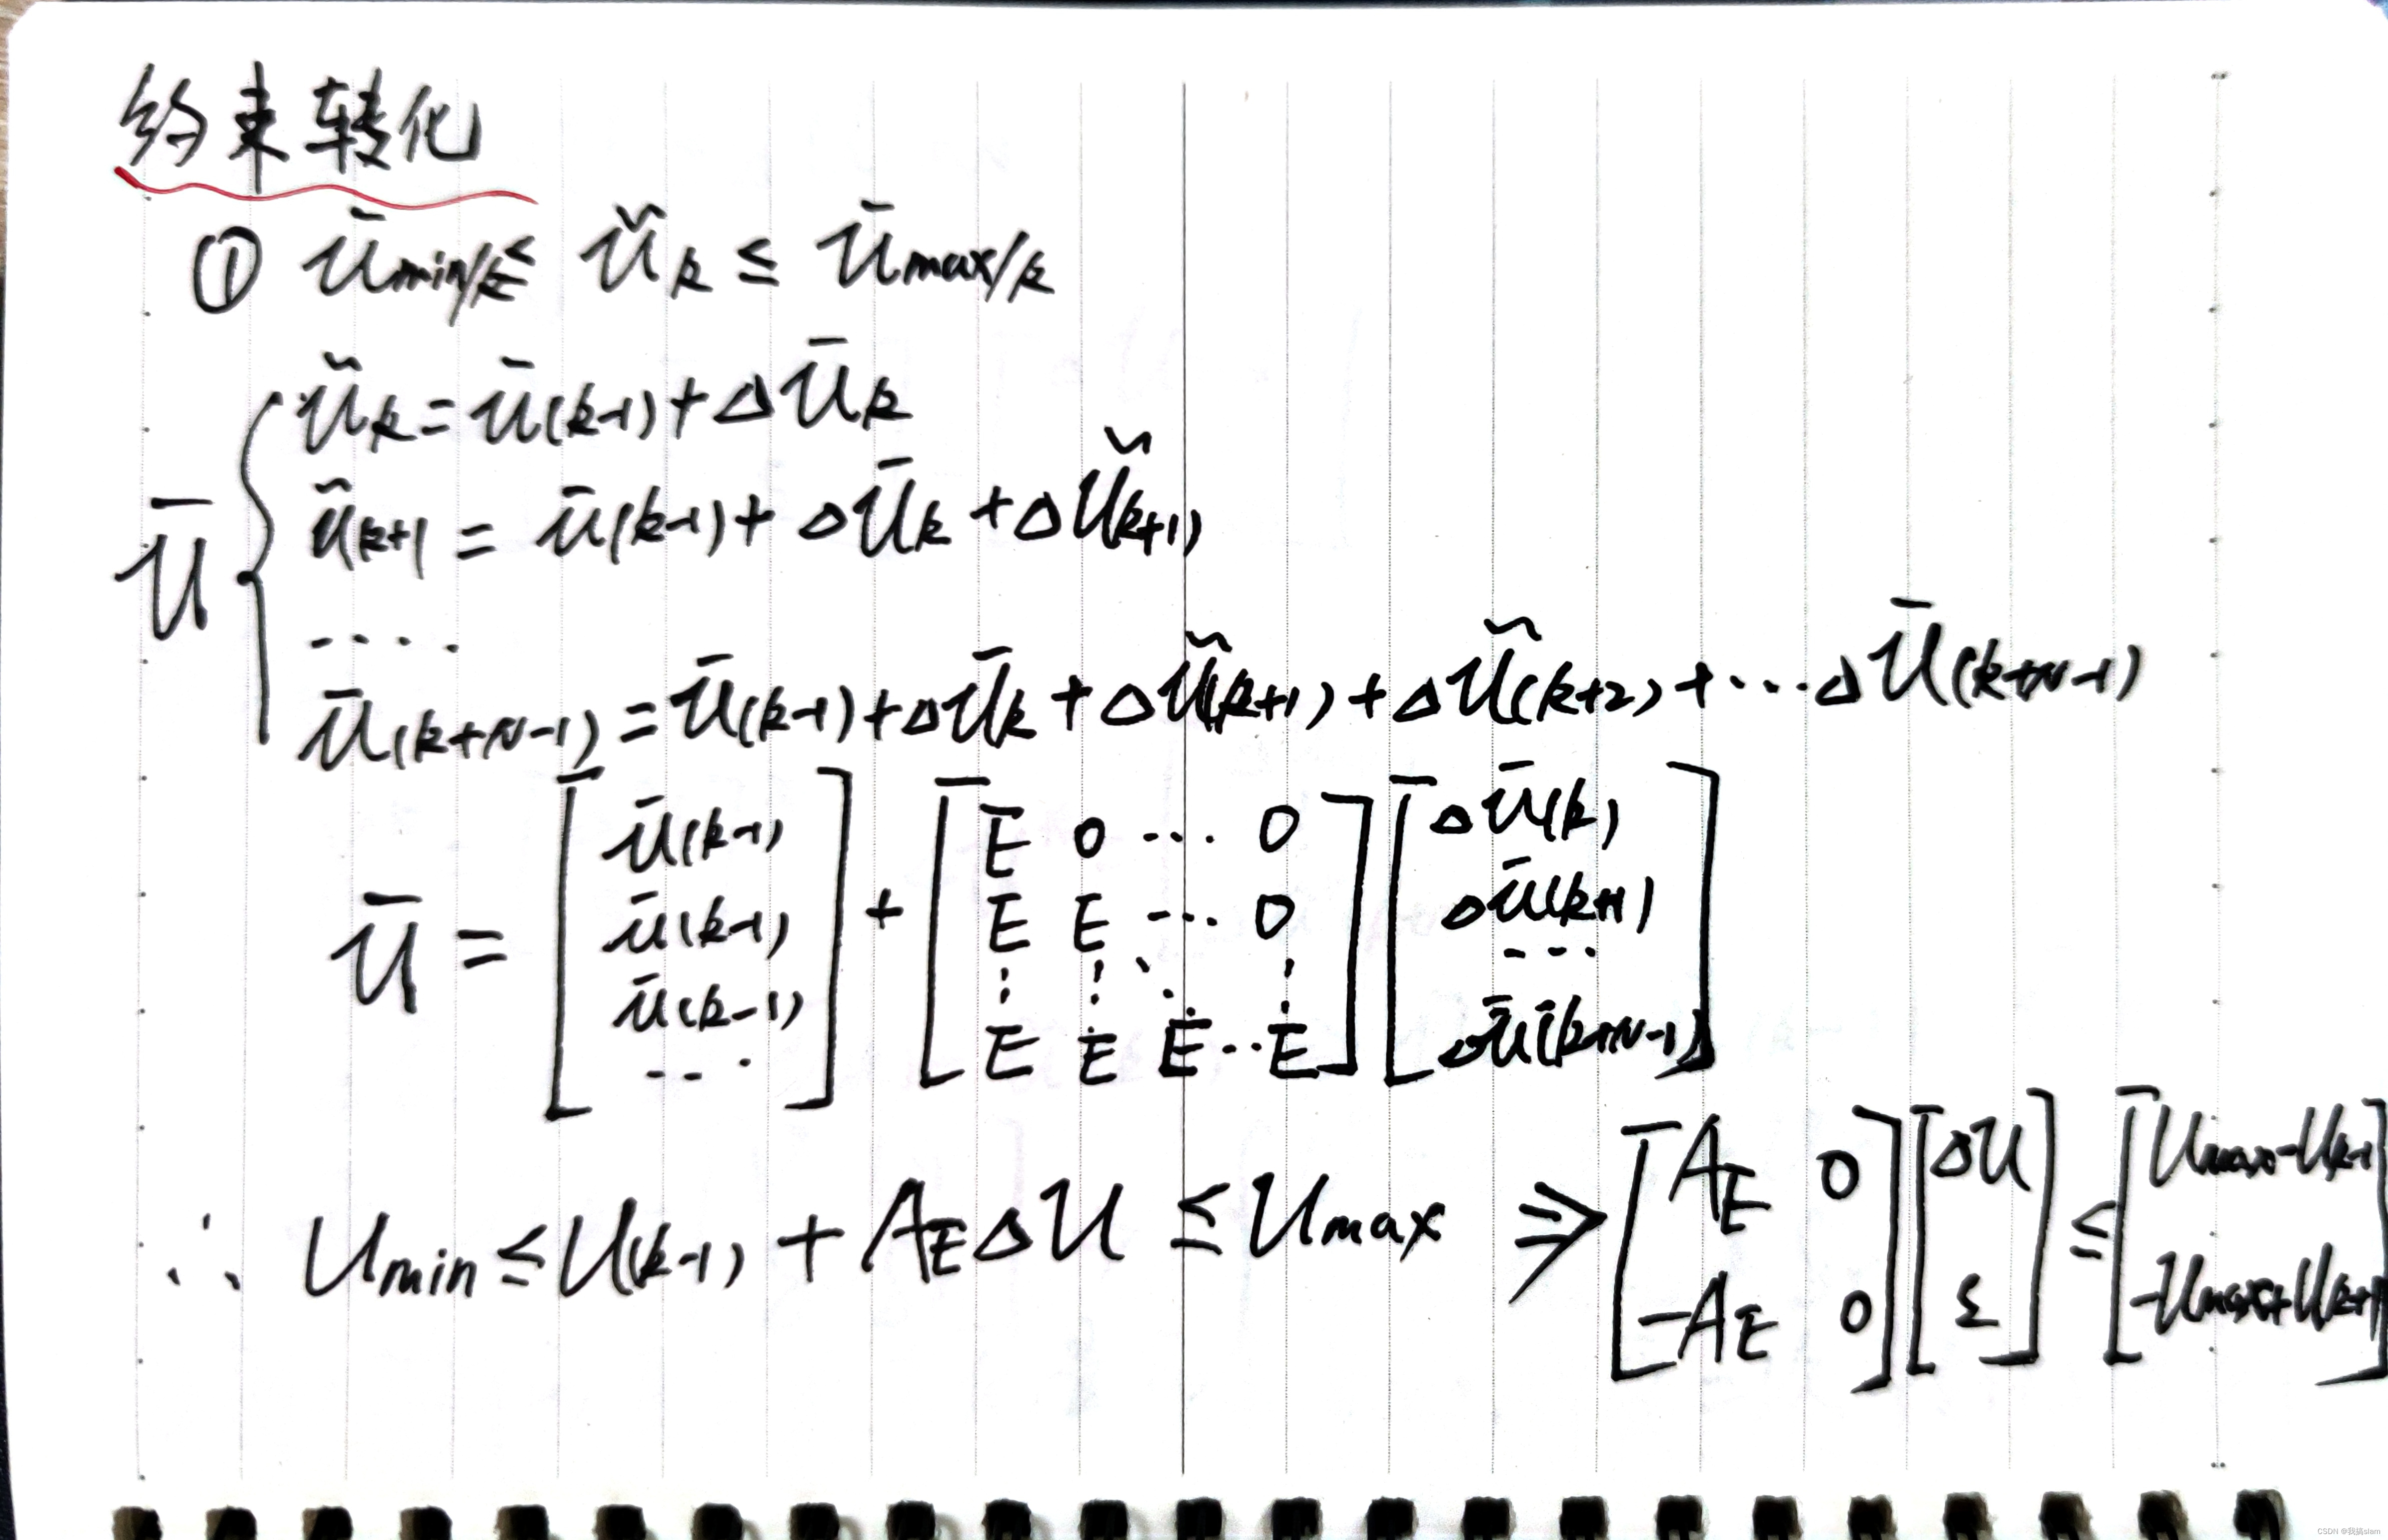 约束转化
① ūmin/k ≤ ũk ≤ ūmax/k
ũk = ū(k-1) + Δūk
ũk+1 = ū(k-1) + Δūk + Δũk+1)
....
ū(k+N-1) = ū(k-1) + Δūk + Δũ(k+1) + Δũ(k+2) + ... Δū(k+N-1)
ū
ū = [ū(k-1) ū(k-1) ū(k-1) ...] + [E 0 ... 0 E E ... 0 ⋮ ⋮ ⋱ ⋮ E E E .. E] [Δū(k) Δū(k+1) ... Δū(k+N-1)]
∴ Umin ≤ U(k-1) + AE ΔU ≤ Umax ⇒ [AE 0 -AE 0] [ΔU ε] ≤ [Umax-Uk-1 -Umax+Uk+1]
CSDN @我搞slam